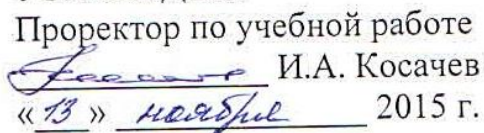 Проректор по учебной работе
И.А. Косачев
«13» ноября 2015 г.